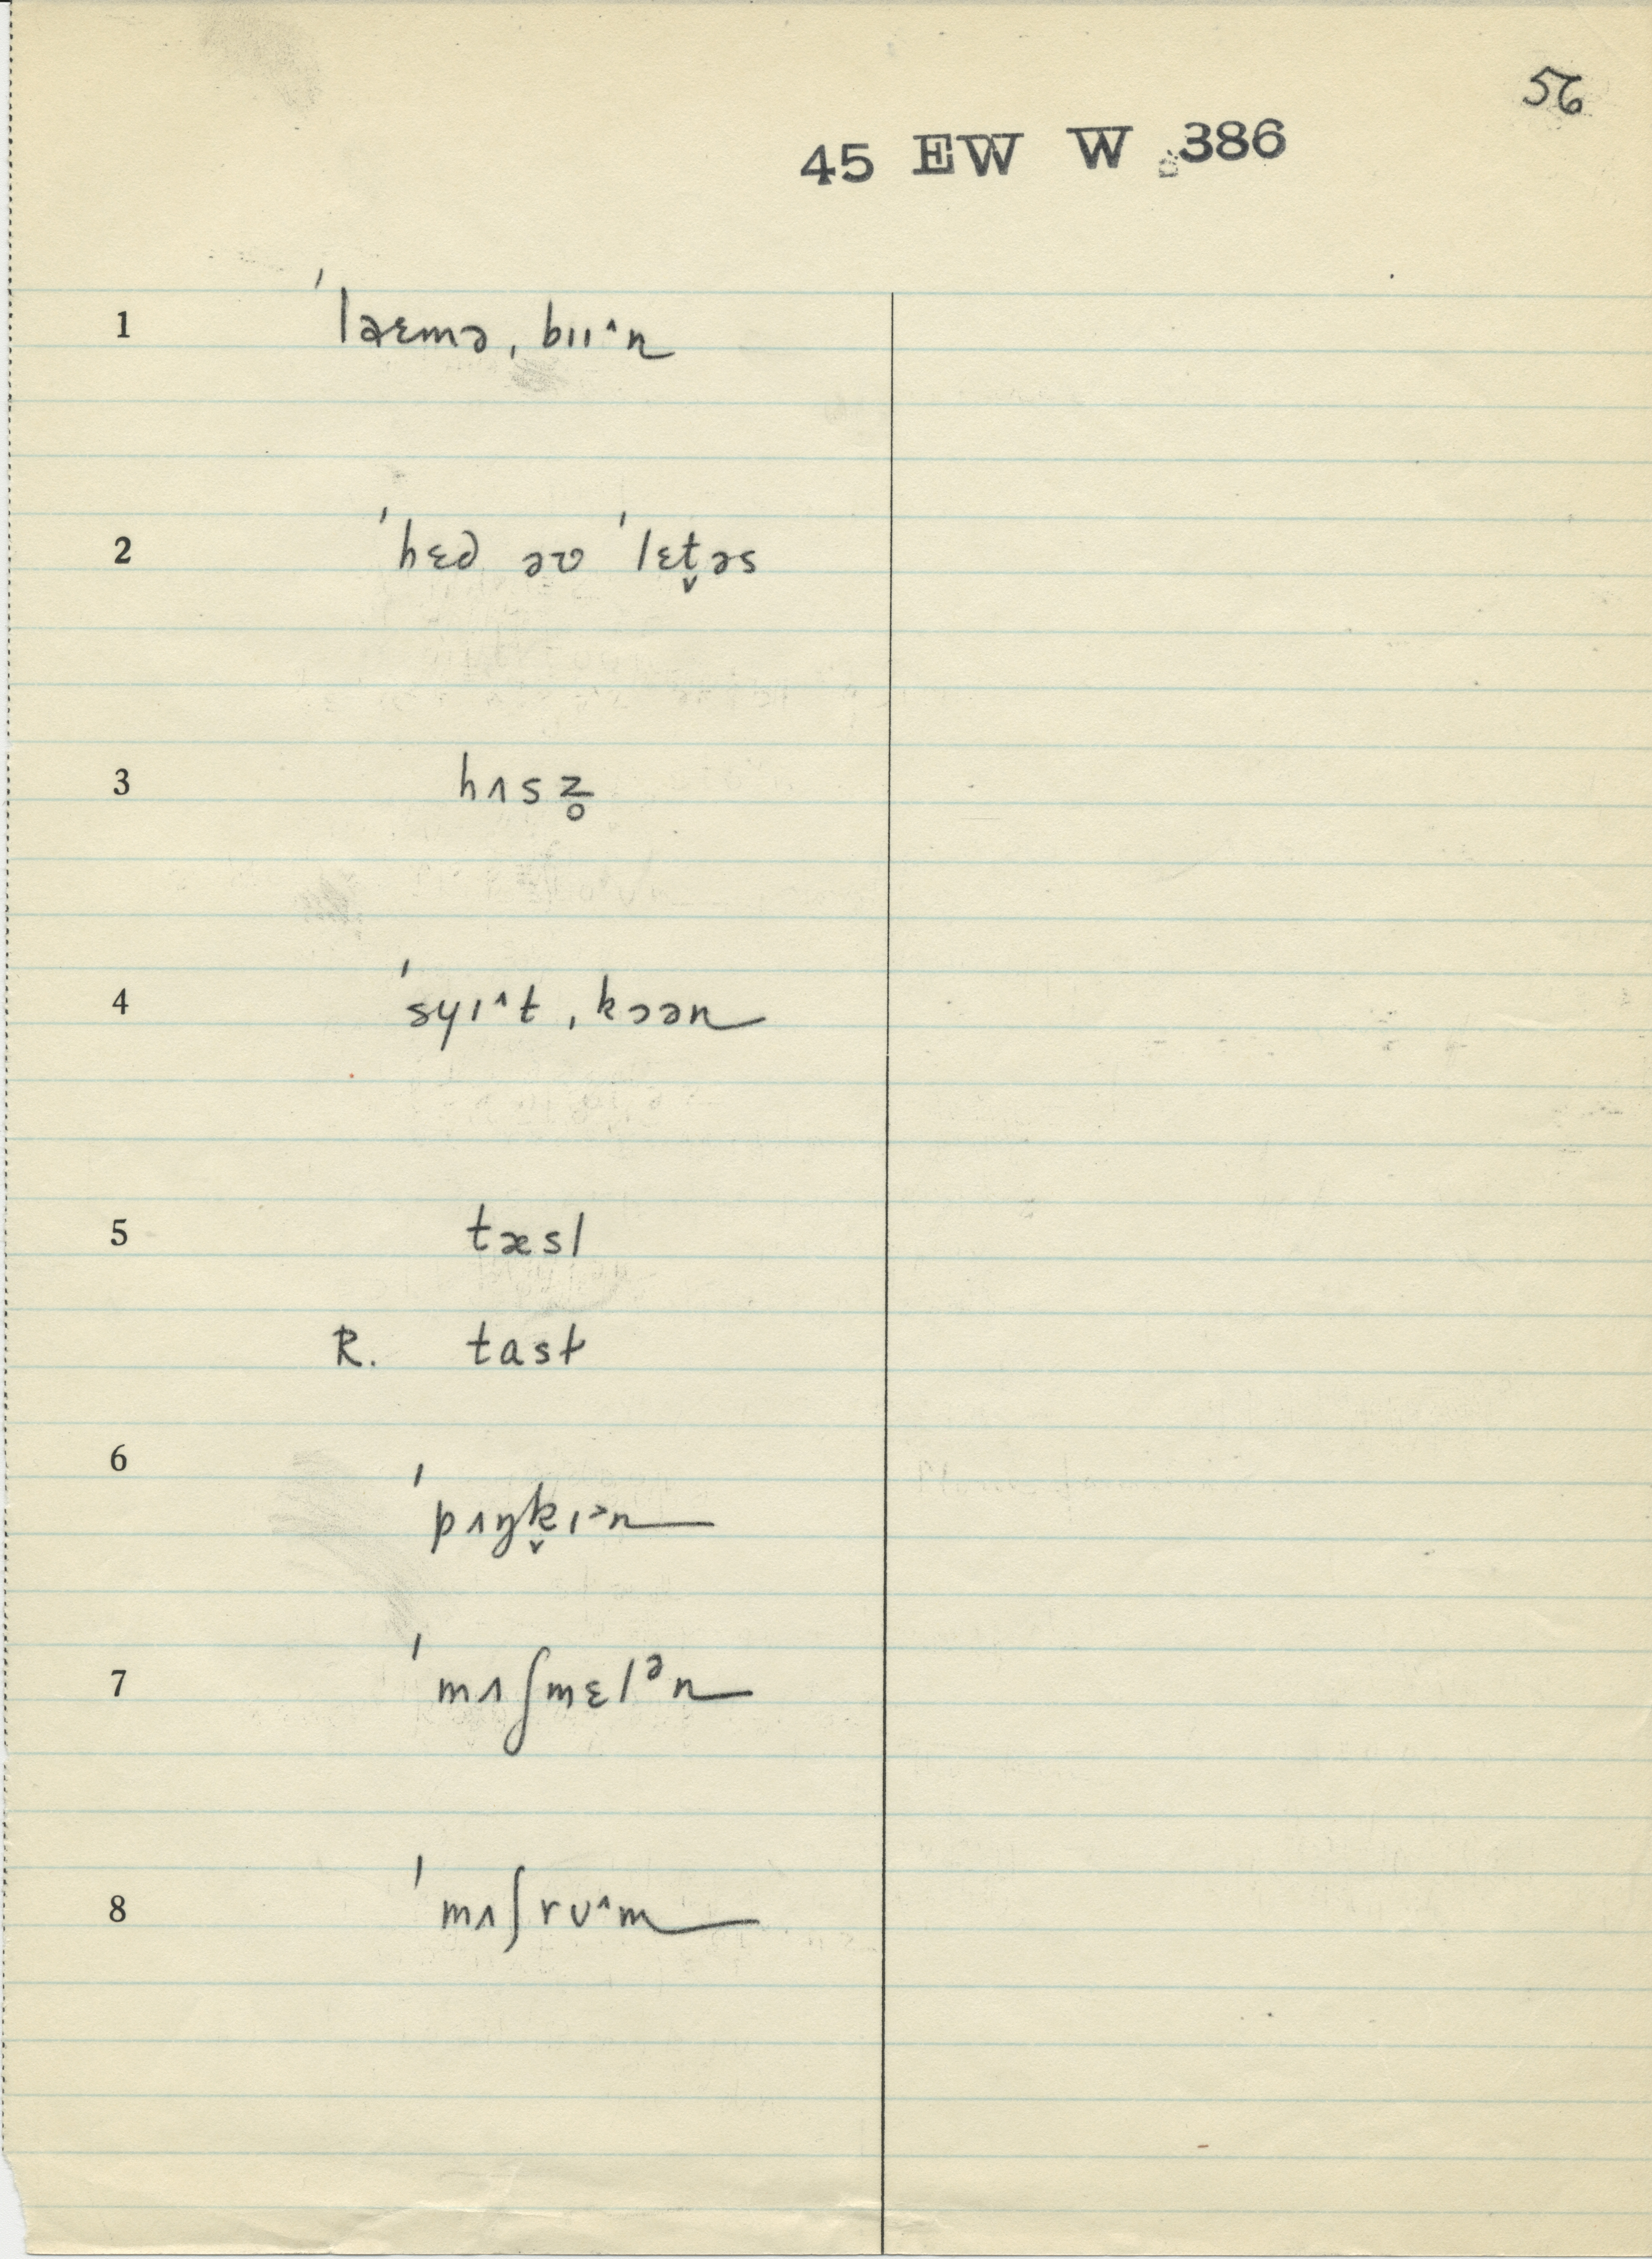 56
45 EW W 386
1 ˈlaɛmə, bɪɪ^n
2 ˈhɛd əv ˈlɛt̬əs
3 hʌsz̥
4 ˈsyɪ^t, kɔən
5 tæsl
R. tast
6 ˈpʌŋk̬ɪ˃n
7 ˈmʌʃmɛlᵊn
8 ˈmʌʃrʊ^m